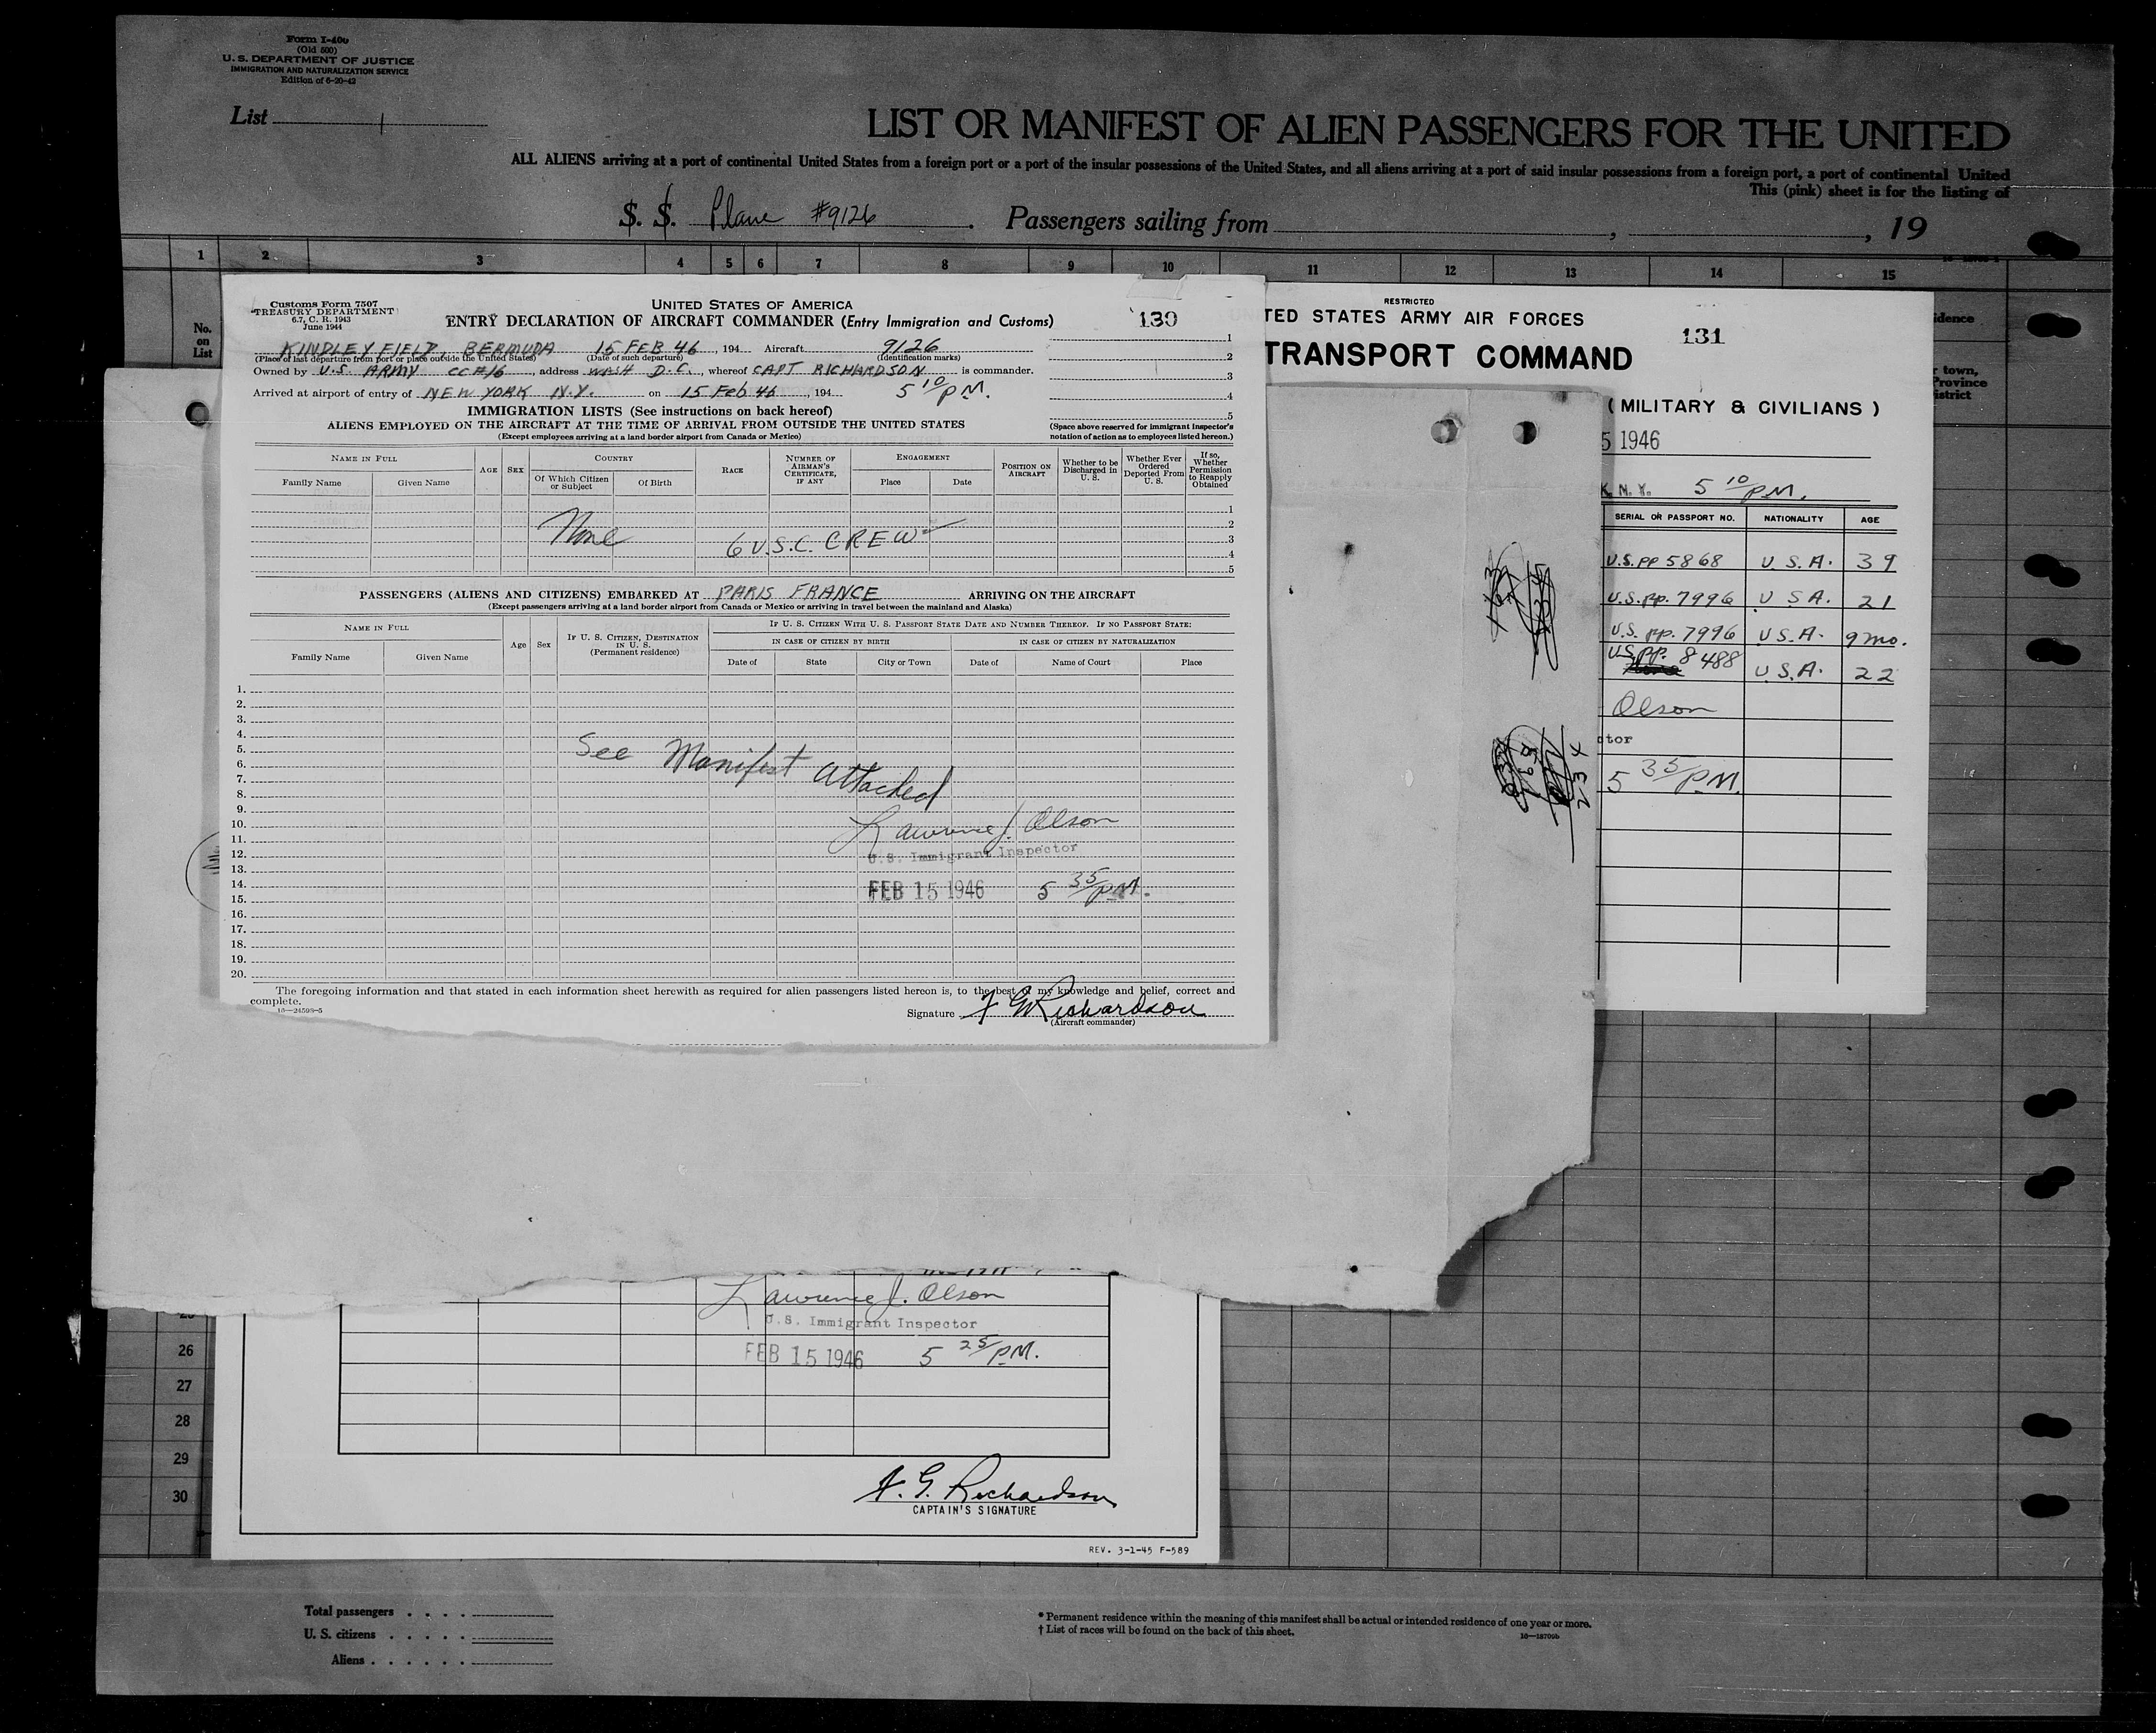 Form I-400
(Old 500)
U. S. DEPARTMENT OF JUSTICE
IMMIGRATION AND NATURALIZATION SERVICE
Edition of 6-20-42
List 1
LIST OR MANIFEST OF ALIEN PASSENGERS FOR THE UNITED
ALL ALIENS arriving at a port of continental United States from a foreign port or a port of the insular possessions of the United States, and all aliens arriving at a port of said insular possessions from a foreign port, a port of continental United
This (pink) sheet is for the listing of
S. S. Plane #9126. Passengers sailing from , , 19
1 2 3 4 5 6 7 8 9 10 11 12 13 14 15
No.
on
List
Customs Form 7507
TREASURY DEPARTMENT
6.7, C. R. 1943
June 1944
UNITED STATES OF AMERICA
ENTRY DECLARATION OF AIRCRAFT COMMANDER (Entry Immigration and Customs)
130
KINDLEY FIELD, BERMUDA 15 FEB 46, 194 Aircraft 9126
(Place of last departure from port or place outside the United States) (Date of such departure) (Identification marks)
Owned by U.S. ARMY CC#16, address WASH D.C., whereof CAPT RICHARDSON is commander.
Arrived at airport of entry of NEW YORK N.Y. on 15 Feb 46, 194 5 10 PM.
1
2
3
4
5
IMMIGRATION LISTS (See instructions on back hereof)
ALIENS EMPLOYED ON THE AIRCRAFT AT THE TIME OF ARRIVAL FROM OUTSIDE THE UNITED STATES
(Except employees arriving at a land border airport from Canada or Mexico)
(Space above reserved for immigrant inspector's
notation of action as to employees listed hereon.)
NAME IN FULL
Family Name Given Name
AGE SEX
COUNTRY
Of Which Citizen or Subject Of Birth
RACE
NUMBER OF AIRMAN'S CERTIFICATE, IF ANY
ENGAGEMENT
Place Date
POSITION ON AIRCRAFT
Whether to be Discharged in U. S.
Whether Ever Ordered Deported From U. S.
If so, Whether Permission to Reapply Obtained
1
2
3
4
5
None
6 U.S.C. CREW
PASSENGERS (ALIENS AND CITIZENS) EMBARKED AT PARIS FRANCE ARRIVING ON THE AIRCRAFT
(Except passengers arriving at a land border airport from Canada or Mexico or arriving in travel between the mainland and Alaska)
NAME IN FULL
Family Name Given Name
Age Sex
IF U. S. CITIZEN, DESTINATION IN U. S.
(Permanent residence)
IF U. S. CITIZEN WITH U. S. PASSPORT STATE DATE AND NUMBER THEREOF. IF NO PASSPORT STATE:
IN CASE OF CITIZEN BY BIRTH IN CASE OF CITIZEN BY NATURALIZATION
Date of State City or Town Date of Name of Court Place
1.
2.
3.
4.
5.
6.
7.
8.
9.
10.
11.
12.
13.
14.
15.
16.
17.
18.
19.
20.
See Manifest Attached
Lawrence J. Olson
U.S. Immigrant Inspector
FEB 15 1946 5 35 PM.
The foregoing information and that stated in each information sheet herewith as required for alien passengers listed hereon is, to the best of my knowledge and belief, correct and
complete.
16—24599-5
Signature F G Richardson
(Aircraft commander)
RESTRICTED
TED STATES ARMY AIR FORCES
131
TRANSPORT COMMAND
(MILITARY & CIVILIANS)
5 1946
K, N. Y. 5 10 PM.
SERIAL OR PASSPORT NO. NATIONALITY AGE
U.S. pp 5868 U.S.A. 39
U.S. pp. 7996 U S A. 21
U.S. pp. 7996 U S.A. 9 mo.
U.S. pp. 8488 U.S.A. 22
Olson
ctor
5 35 PM.
idence
r town,
Province
istrict
Lawrence J. Olson
U.S. Immigrant Inspector
FEB 15 1946 5 25 PM.
26
27
28
29
30
F. G. Richardson
CAPTAIN'S SIGNATURE
REV. 3-1-45 F-589
Total passengers
U. S. citizens
Aliens
* Permanent residence within the meaning of this manifest shall be actual or intended residence of one year or more.
† List of races will be found on the back of this sheet.
16—18700b